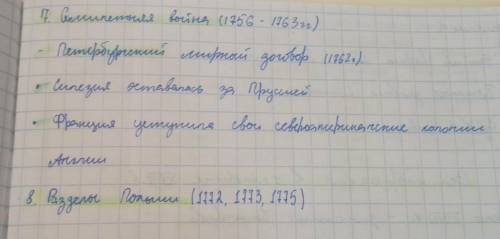 7. Семилетняя война (1756 - 1763гг)
- Петербургский мирный договор (1762г.)
• Силезия оставалась за Пруссией
• Франция уступила свои североамериканские колонии
Англии
8. Разделы Польши (1772, 1773, 1775)